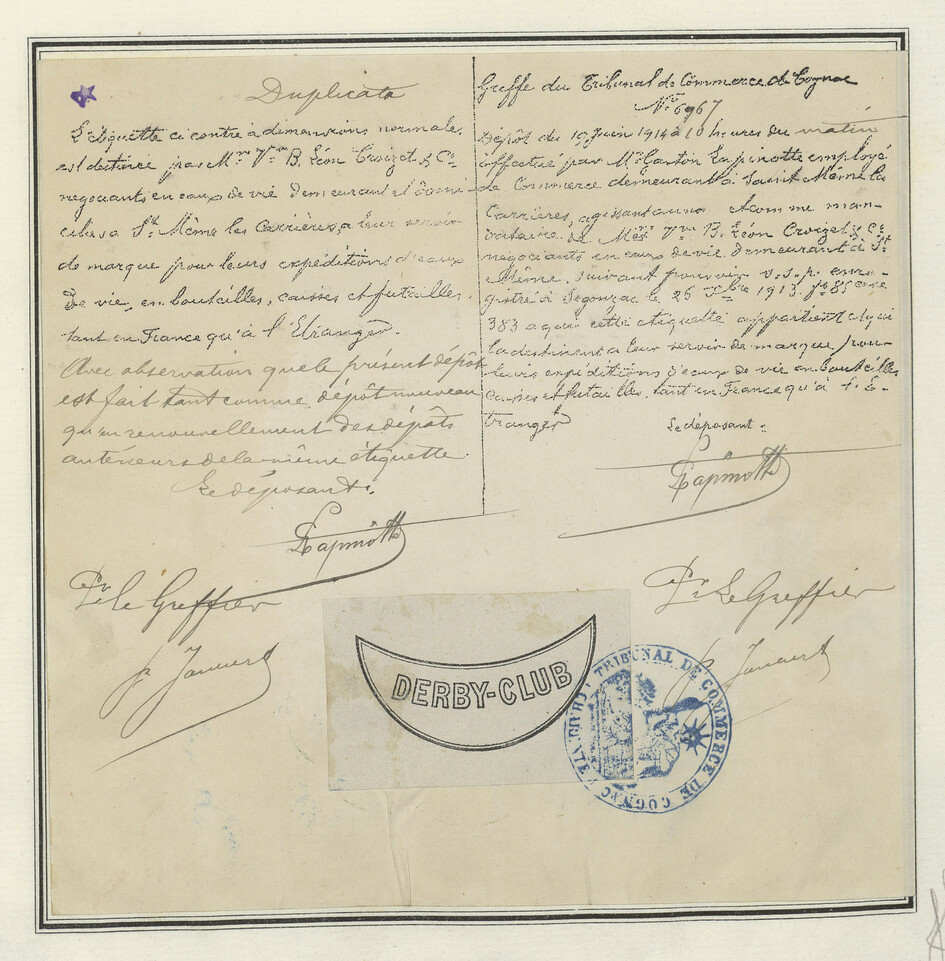 Duplicata
L'étiquette ci contre à dimensions normales,
est destinée par Mme Vve B. Léon Croizet & Cie
négociants en eaux de vie demeurant et domi-
ciliés à St. Même les Carrières, à leur servir
de marque pour leurs expéditions d'eaux
de vie, en bouteilles, caisses et futailles,
tant en France qu'à l'Etranger.
Avec observation que le présent dépôt
est fait tant comme dépôt nouveau
qu'en renouvellement des dépôts
antérieurs de la même étiquette.
Le déposant.
Pr Le Greffier
Greffe du Tribunal de Commerce de Cognac
No 6967
Dépôt du 19 Juin 1914 à 10 heures du matin
effectué par Mr Gaston Lapinotte employé
de Commerce demeurant à Saint Même les
Carrières, agissant au nom et comme man-
dataire de Mme Vve B. Léon Croizet & Cie
négociants en eaux de vie demeurant à St
Même, suivant pouvoir s.s.p. enre-
gistré à Segonzac le 26 1913. fo 85 case
383 à qui cette étiquette appartient et qui
la destinent à leur servir de marque pour
leurs expéditions d'eaux de vie en bouteilles
caisses et futailles, tant en France qu'à l'E-
tranger
Le déposant:
Pr Le Greffier
DERBY-CLUB
TRIBUNAL DE COMMERCE DE COGNAC